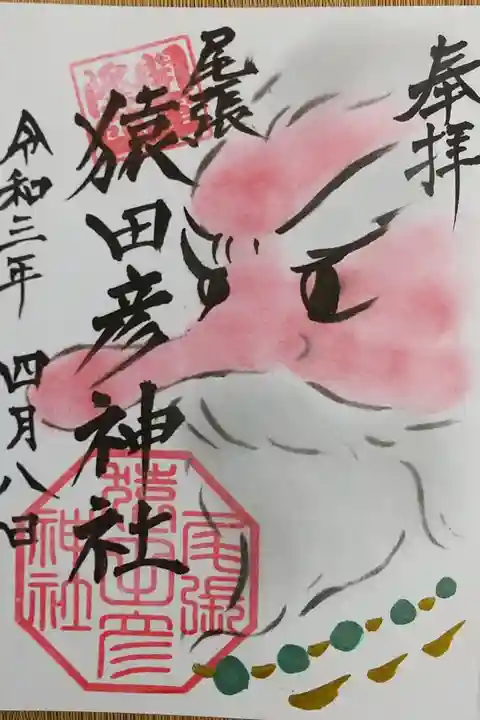 奉拝
尾張
猿田彦神社
令和三年 四月八日
尾張
猿田彦
神社